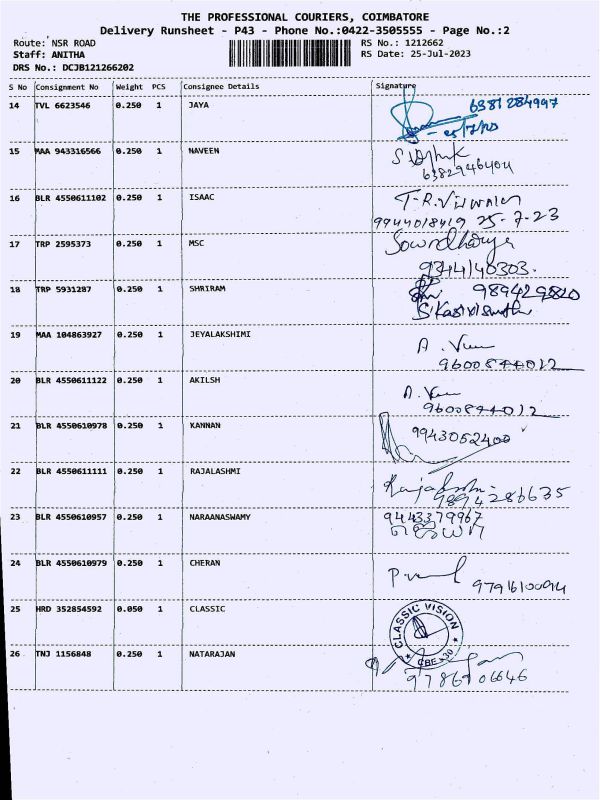 THE PROFESSIONAL COURIERS, COIMBATORE
Delivery Runsheet - P43 - Phone No.:0422-3505555 - Page No.:2
Route: NSR ROAD RS No.: 1212662
Staff: ANITHA RS Date: 25-Jul-2023
DRS No.: DCJB121266202
S No Consignment No Weight PCS Consignee Details Signature
14 TVL 6623546 0.250 1 JAYA 6381284997
25/7/23
15 MAA 943316566 0.250 1 NAVEEN
6382946404
16 BLR 4550611102 0.250 1 ISAAC T-R.
9944018419 25-7-23
17 TRP 2595373 0.250 1 MSC Sowndharya
9344140303.
18 TRP 5931287 0.250 1 SHRIRAM 9894229820
19 MAA 104863927 0.250 1 JEYALAKSHIMI A.
9600844012
20 BLR 4550611122 0.250 1 AKILSH A.
9600844012
21 BLR 4550610978 0.250 1 KANNAN 9943052400
22 BLR 4550611111 0.250 1 RAJALASHMI Rajalakshmi
9894286635
23 BLR 4550610957 0.250 1 NARAANASWAMY 9443379967
24 BLR 4550610979 0.250 1 CHERAN
25 HRD 352854592 0.050 1 CLASSIC CLASSIC VISION
CBE - 30
26 TNJ 1156848 0.250 1 NATARAJAN